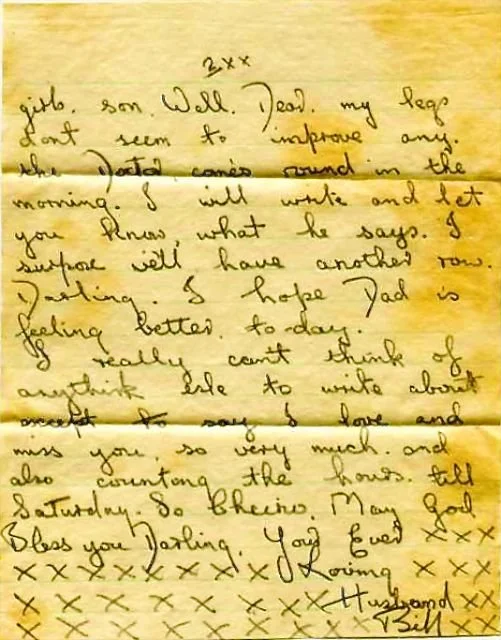 2xx
girls. son. Well. Dear. my legs
dont seem to improve any.
the Doctor comes round in the
morning. I will write and let
you know, what he says. I
surpose we'll have another row.
Darling. I hope Dad is
feeling better. to-day.
I really can't think of
anythink esle to write about
except to say I love and
miss you, so very much. and
also counting the hours. till
Saturday. So Cheerio, May God
Bless you Darling. Your Ever x x x
x x x x x x x x x Loving x x x
x x x x x x x x x Husband x x
x x x x x x x x x x x Bill x x